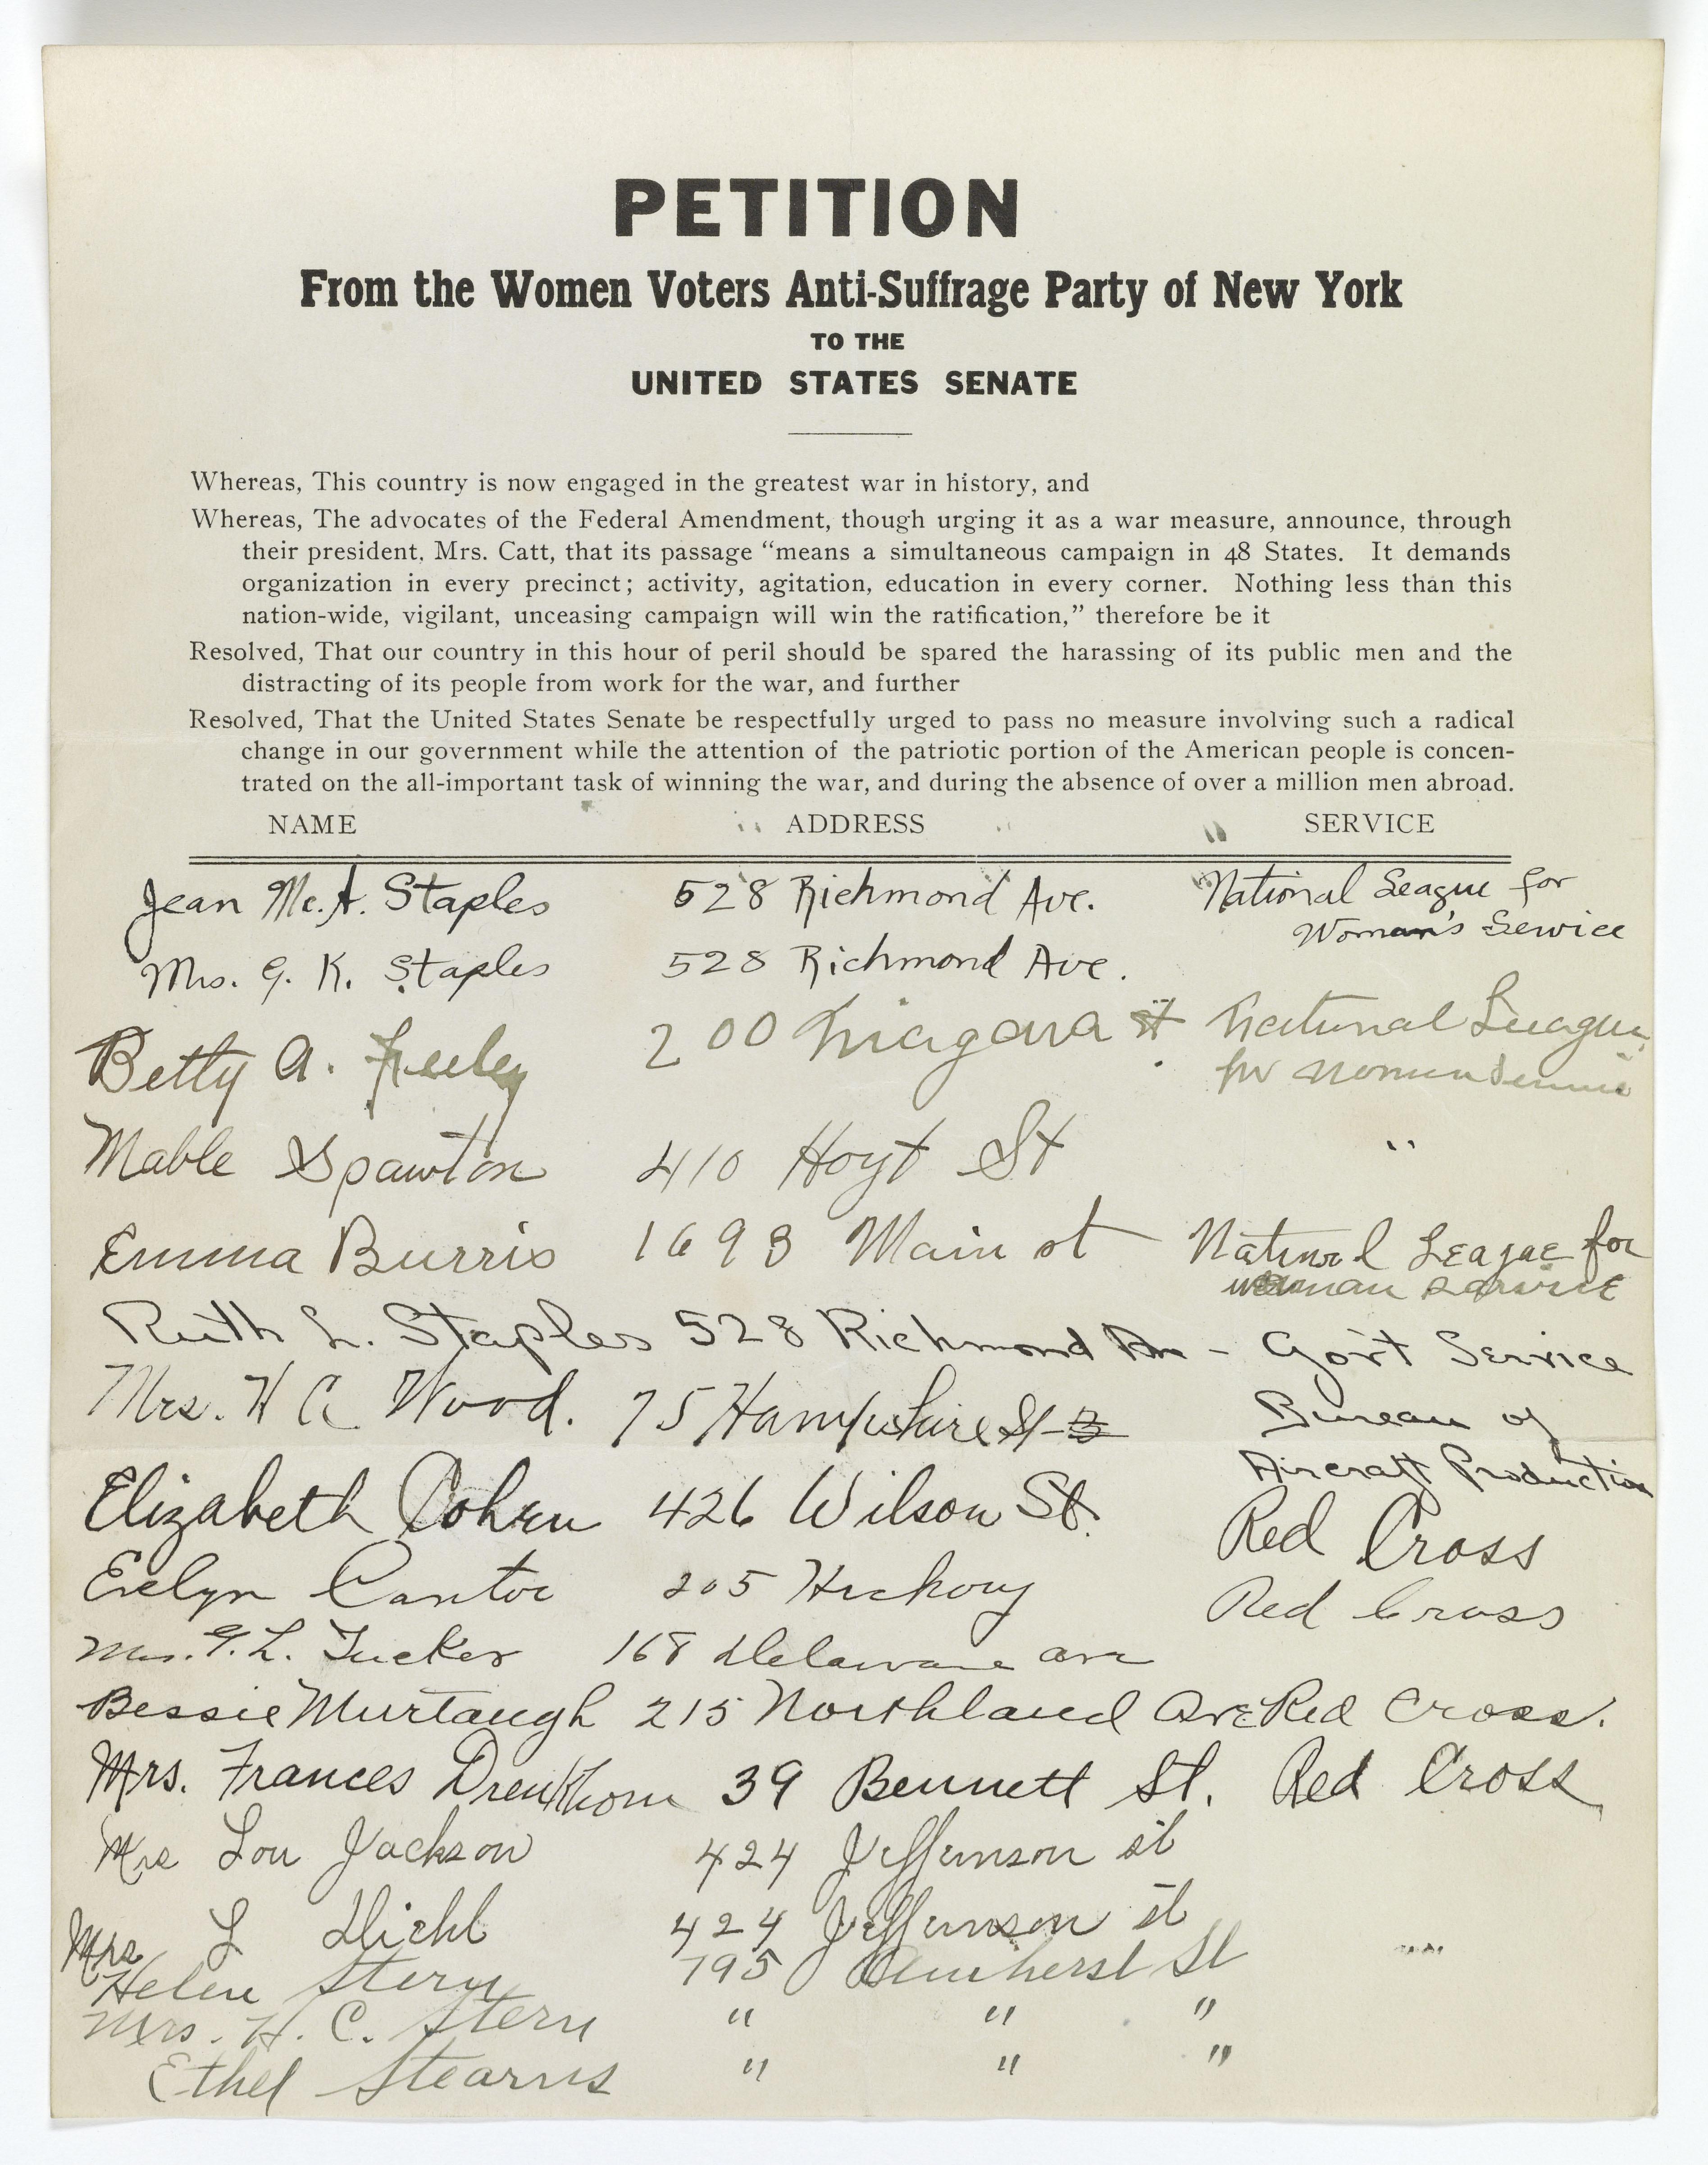 PETITION
From the Women Voters Anti-Suffrage Party of New York
TO THE
UNITED STATES SENATE
Whereas, This country is now engaged in the greatest war in history, and
Whereas, The advocates of the Federal Amendment, though urging it as a war measure, announce, through
their president, Mrs. Catt, that its passage “means a simultaneous campaign in 48 States. It demands
organization in every precinct; activity, agitation, education in every corner. Nothing less than this
nation-wide, vigilant, unceasing campaign will win the ratification,” therefore be it
Resolved, That our country in this hour of peril should be spared the harassing of its public men and the
distracting of its people from work for the war, and further
Resolved, That the United States Senate be respectfully urged to pass no measure involving such a radical
change in our government while the attention of the patriotic portion of the American people is concen-
trated on the all-important task of winning the war, and during the absence of over a million men abroad.
NAME ADDRESS SERVICE
Jean Mc.A. Staples 528 Richmond Ave. National League for
Woman's Service
Mrs. G. K. Staples 528 Richmond Ave.
Betty A. Feeley 200 Niagara St National League
for Women Service
Mable Spawton 410 Hoyt St "
Emma Burris 1698 Main st National League for
woman service
Ruth L. Staples 528 Richmond Av - Gov't Service
Mrs. H C Wood. 75 Hampshire St Bureau of
Aircraft Production
Elizabeth Cohen 426 Wilson St. Red Cross
Evelyn Cantor 205 Hickory Red Cross
Mrs. G. L. Tucker 168 Delaware ave
Bessie Murtaugh 215 Northland Ave Red Cross.
Mrs. Frances Drenkhorn 39 Bennett St. Red Cross
Mrs Lou Jackson 424 Jefferson st
Mrs L Diehl 424 Jefferson st
Helen Stern 795 Amherst St
Mrs. H. C. Stern " " "
Ethel Stearns " " "